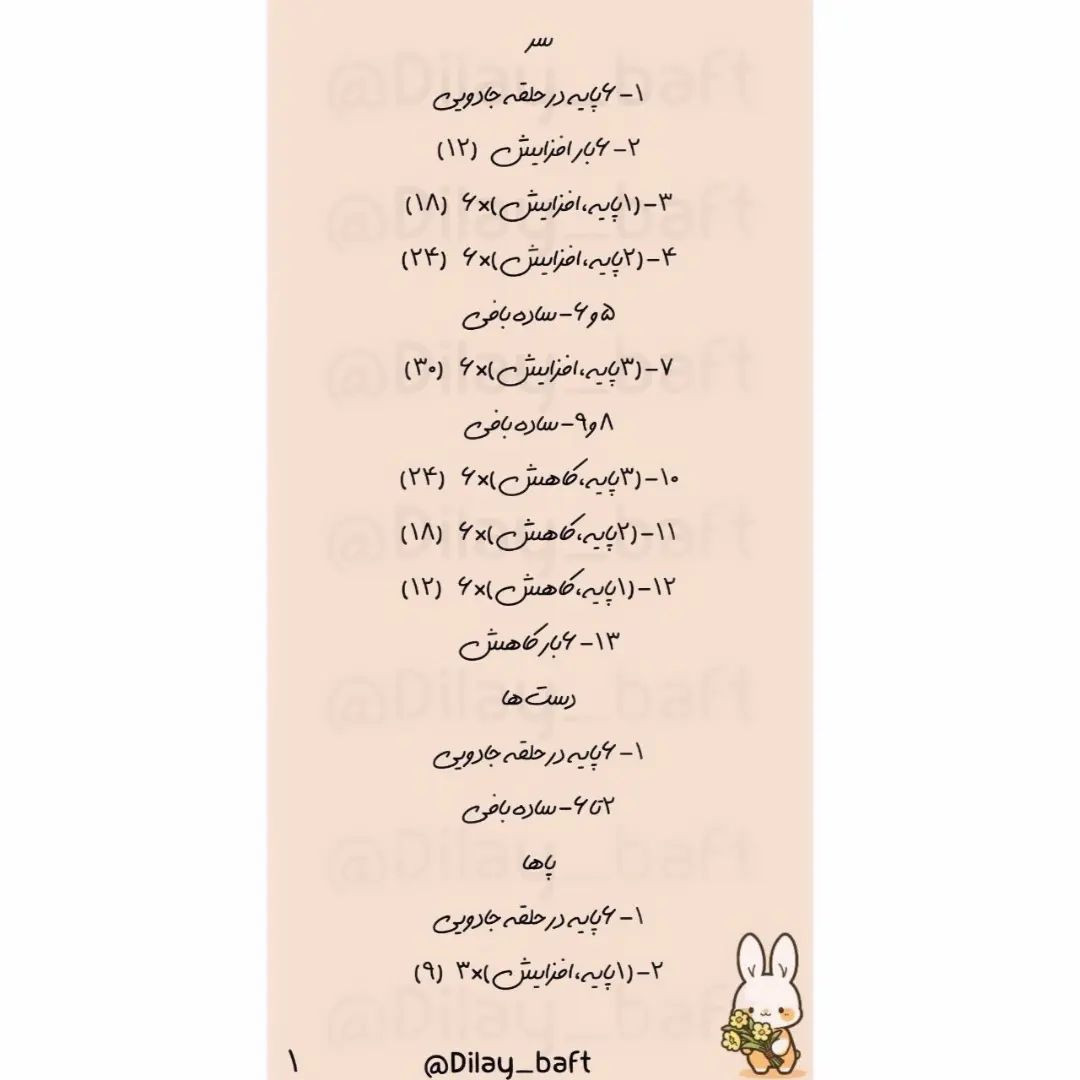 سر
۱- ۶پایه در حلقه جادویی
۲- ۶بار افزایش (۱۲)
۳-(۱پایه،افزایش)×۶ (۱۸)
۴-(۲پایه،افزایش)×۶ (۲۴)
۵ و ۶-ساده بافی
۷-(۳پایه،افزایش)×۶ (۳۰)
۸ و ۹-ساده بافی
۱۰-(۳پایه،کاهش)×۶ (۲۴)
۱۱-(۲پایه،کاهش)×۶ (۱۸)
۱۲-(۱پایه،کاهش)×۶ (۱۲)
۱۳- ۶بار کاهش
دست ها
۱- ۶پایه در حلقه جادویی
۲تا ۶-ساده بافی
پاها
۱- ۶پایه در حلقه جادویی
۲-(۱پایه،افزایش)×۳ (۹)
۱
@Dilay_baft
@Dilay_baft
@Dilay_baft
@Dilay_baft
@Dilay_baft
@Dilay_baft
@Dilay_baft
@Dilay_baft